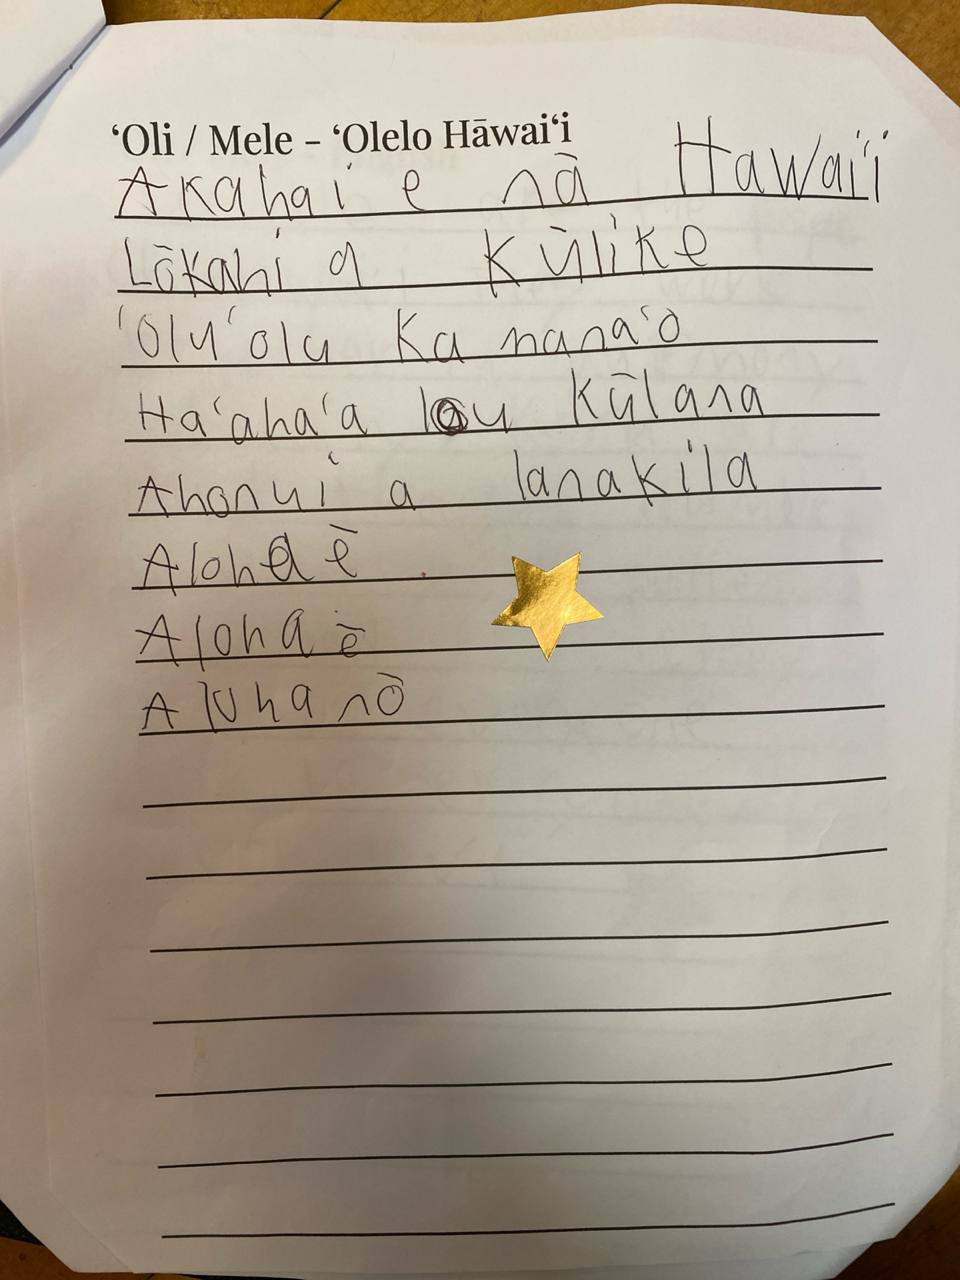 ʻOli / Mele - ʻOlelo Hāwaiʻi
Akahai e nā Hawaiʻi
Lōkahi a Kūlike
ʻOluʻolu Ka manaʻo
Haʻahaʻa lou Kūlana
Ahonui a lanakila
Aloha ē
Aloha ē
Aloha nō